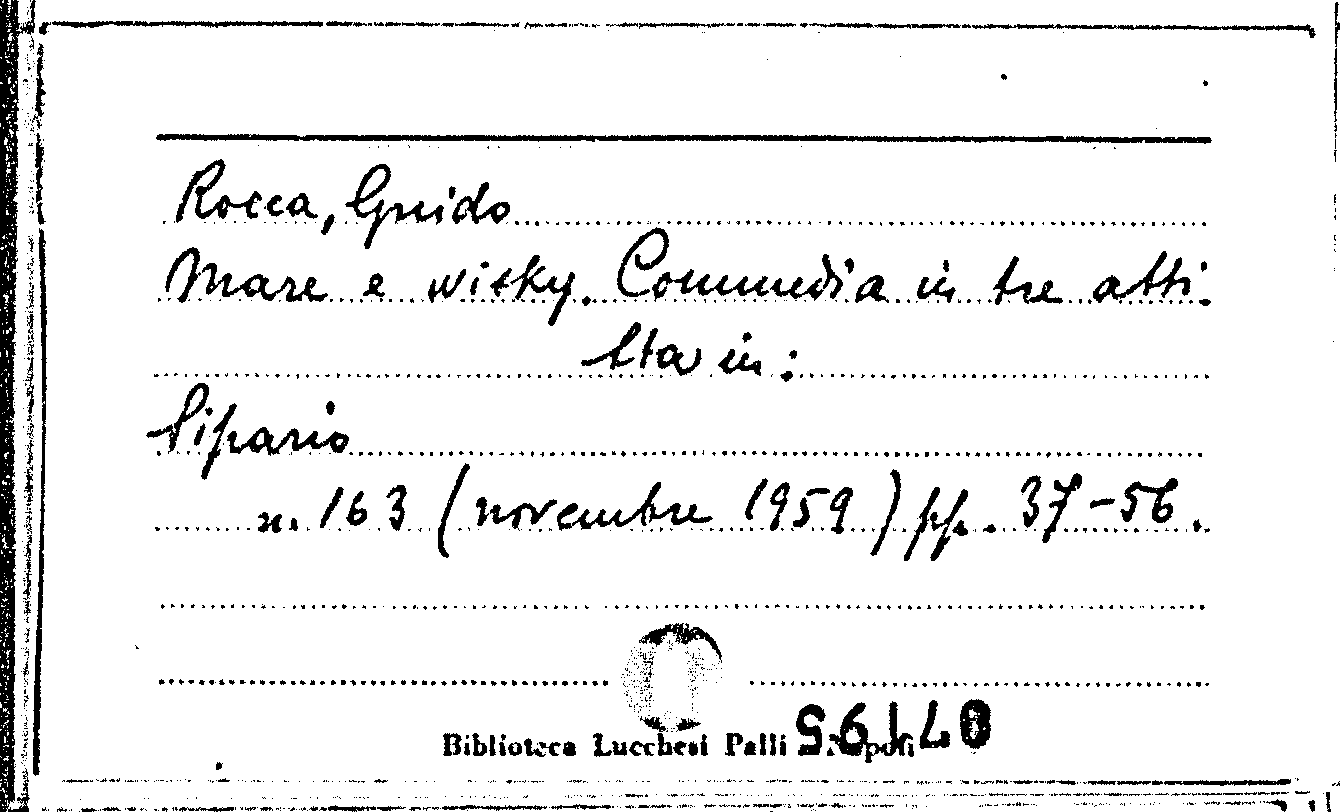 Rocca, Guido
Mare e wisky. Commedia in tre atti.
Sta in:
Sipario
n. 163 (novembre 1959) pp. 37-56.
Biblioteca Lucchesi Palli - Napoli
07195